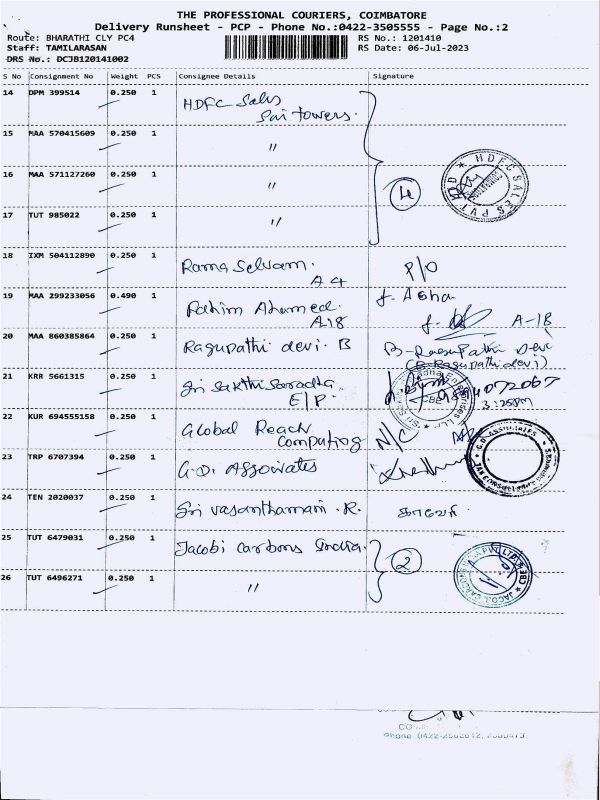 THE PROFESSIONAL COURIERS, COIMBATORE
Delivery Runsheet - PCP - Phone No.:0422-3505555 - Page No.:2
Route: BHARATHI CLY PC4
RS No.: 1201410
Staff: TAMILARASAN
RS Date: 06-Jul-2023
DRS No.: DCJB120141002
S No Consignment No Weight PCS Consignee Details Signature
14 DPM 399514 0.250 1 HDFC Sales
Sai towers.
15 MAA 570415609 0.250 1 〃
16 MAA 571127260 0.250 1 〃
4
HDFC SALES PVT LTD
17 TUT 985022 0.250 1 〃
18 IXM 504112890 0.250 1 Rama Selvam.
A4
P/O
19 MAA 299233056 0.490 1 Rahim Ahamed.
A18
J. Asha
A-18
20 MAA 860385864 0.250 1 Ragupathi devi. B
B-Ragupathi Devi
(B-Ragupathi devi)
21 KRR 5661315 0.250 1 Sri Sakthi Saradha.
E/P.
3:25PM
22 KUR 694555158 0.250 1 Global Reach
Computing
N/C
23 TRP 6707394 0.250 1 G.D. Associates
G.D. ASSOCIATES
24 TEN 2020037 0.250 1 Sri Vasanthamani. R.
காவேரி
25 TUT 6479031 0.250 1 Jacobi Carbons India.
2
26 TUT 6496271 0.250 1 〃